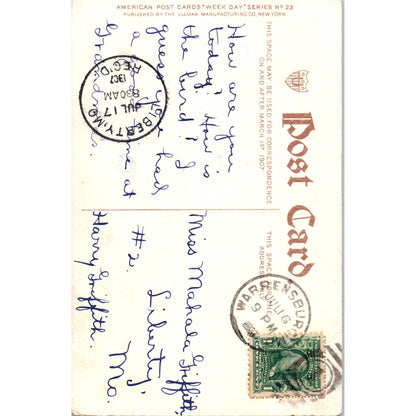 AMERICAN POST CARDS "WEEK DAY" SERIES No 23
PUBLISHED BY THE ULLMAN MANUFACTURING CO., NEW YORK
THIS SPACE MAY BE USED FOR CORRESPONDENCE
ON AND AFTER MARCH 1ST 1907
Post Card
THIS SPACE
ADDRESS
How are you
today? How is
the bird? I
guess you had
a time at
Grandma's.
LIBERTY, MO.
JUL 17
830AM
REC'D.
Miss Mahala Griffith,
#2.
Liberty,
Mo.
Harry Griffith.
WARRENSBUR
JUL 16
9 PM